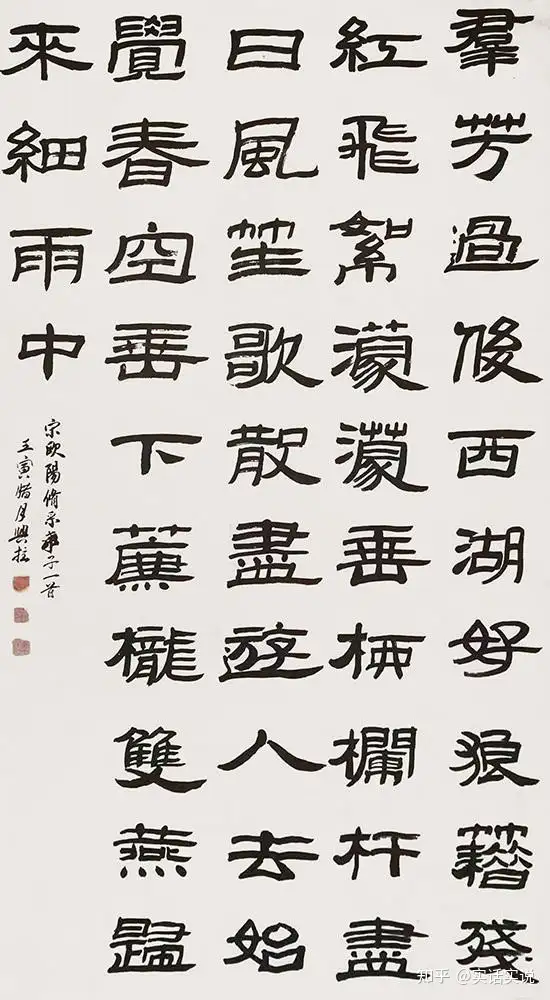 羣芳過後西湖好狼藉殘
紅飛絮濛濛垂柳欄杆盡
日風笙歌散盡遊人去始
覺春空垂下簾櫳雙燕歸
來細雨中
宋歐陽脩采桑子一首
壬寅臘月興拉
知乎 @实话实说